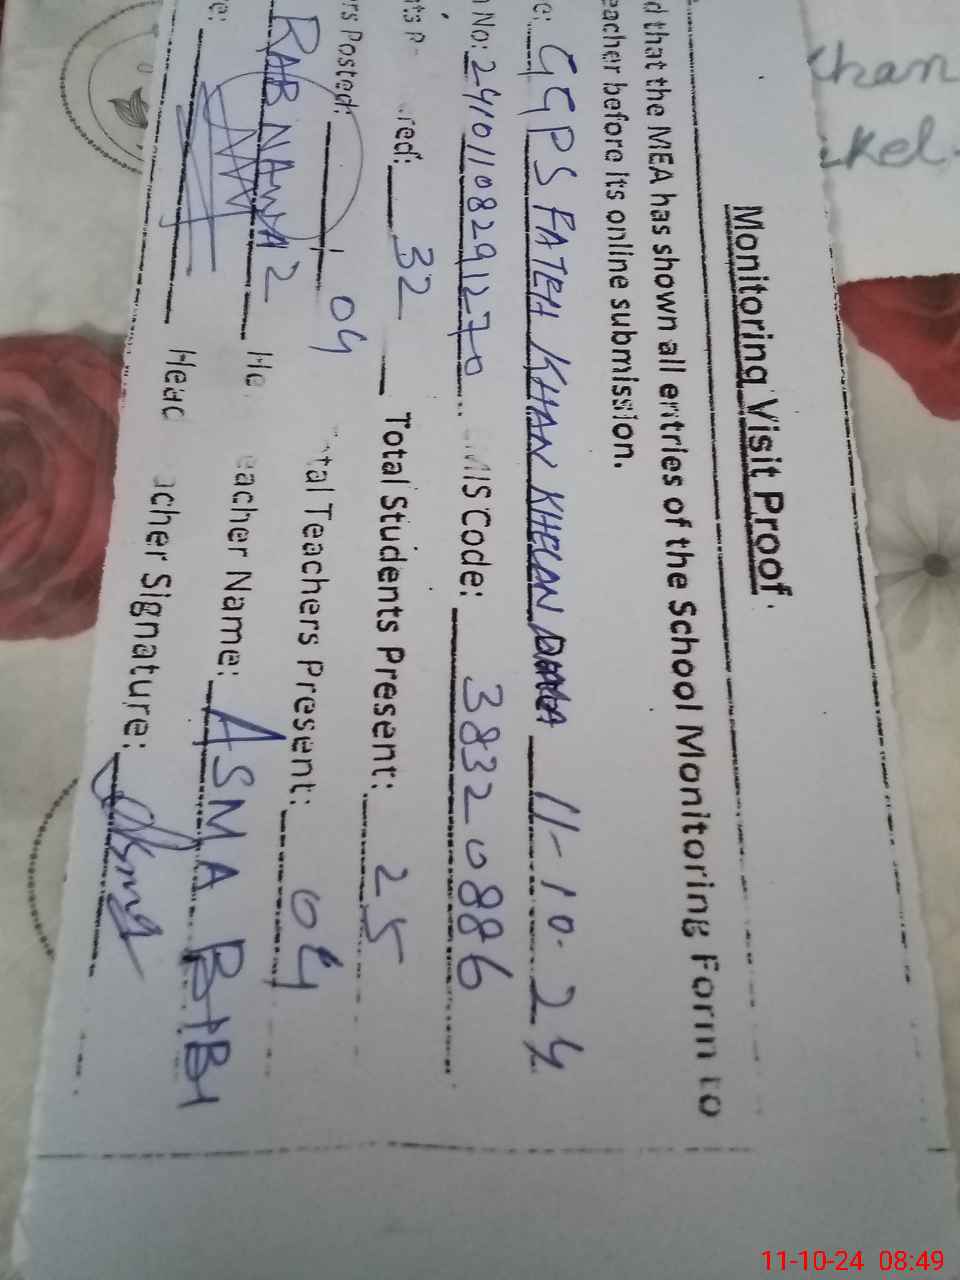 Monitoring Visit Proof.
d that the MEA has shown all entries of the School Monitoring Form to
eacher before its online submission.
e: GGPS FATEH KHAN KHELAN 11-10-24
No: 2401108291270 MIS Code: 38320886
red: 32 Total Students Present: 25
rs Posted: 04 tal Teachers Present: 04
RAB NAWAZ He eacher Name: ASMA BIBI
e: Head acher Signature: Asma
khan
kel.
11-10-24 08:49